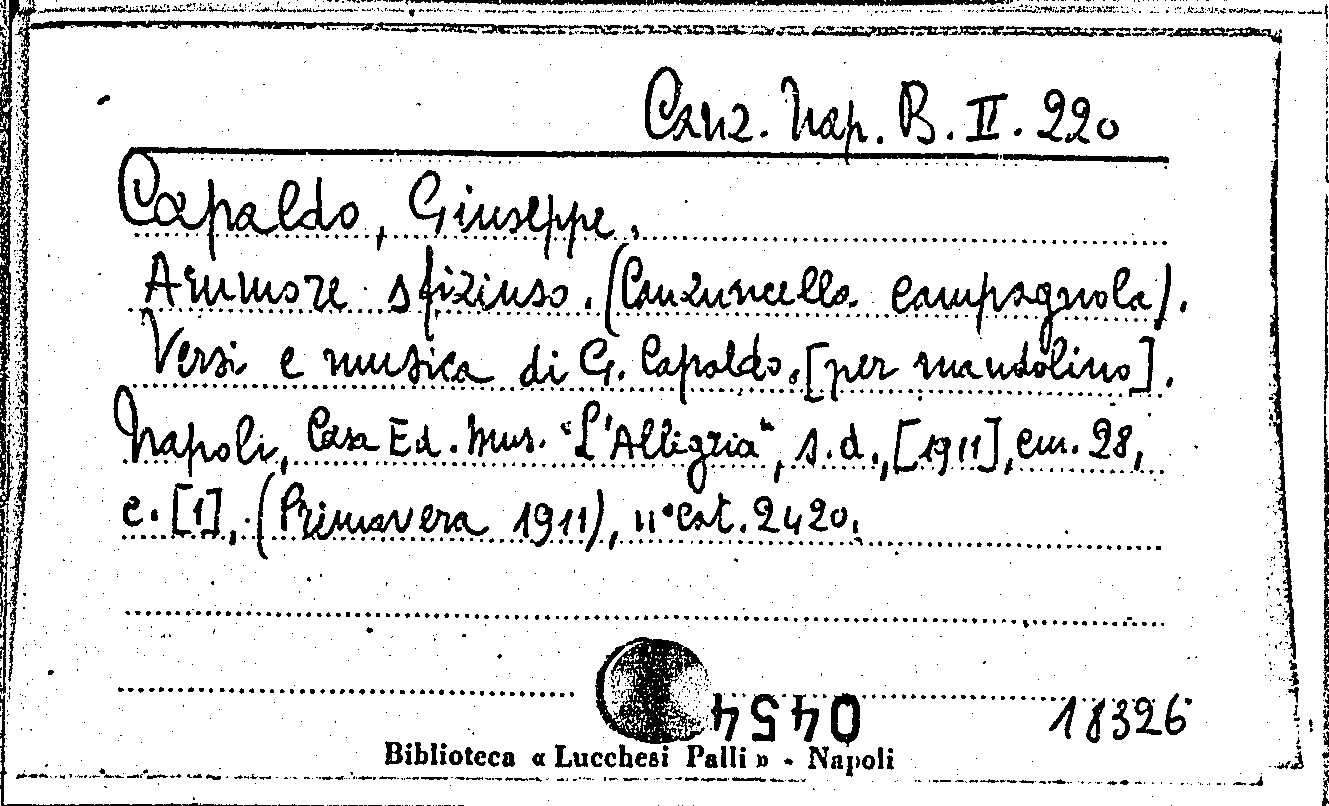 Canz. Nap. B. II. 220
Capaldo, Giuseppe.
Ammore sfiziuso. (Canzuncella campagnola).
Versi e musica di G. Capaldo. [per mandolino].
Napoli, Casa Ed. Mus. "L'Allegria", s.d., [1911], cm. 28,
c. [1], (Primavera 1911), n° cat. 2420.
0454
18326
Biblioteca « Lucchesi Palli » - Napoli